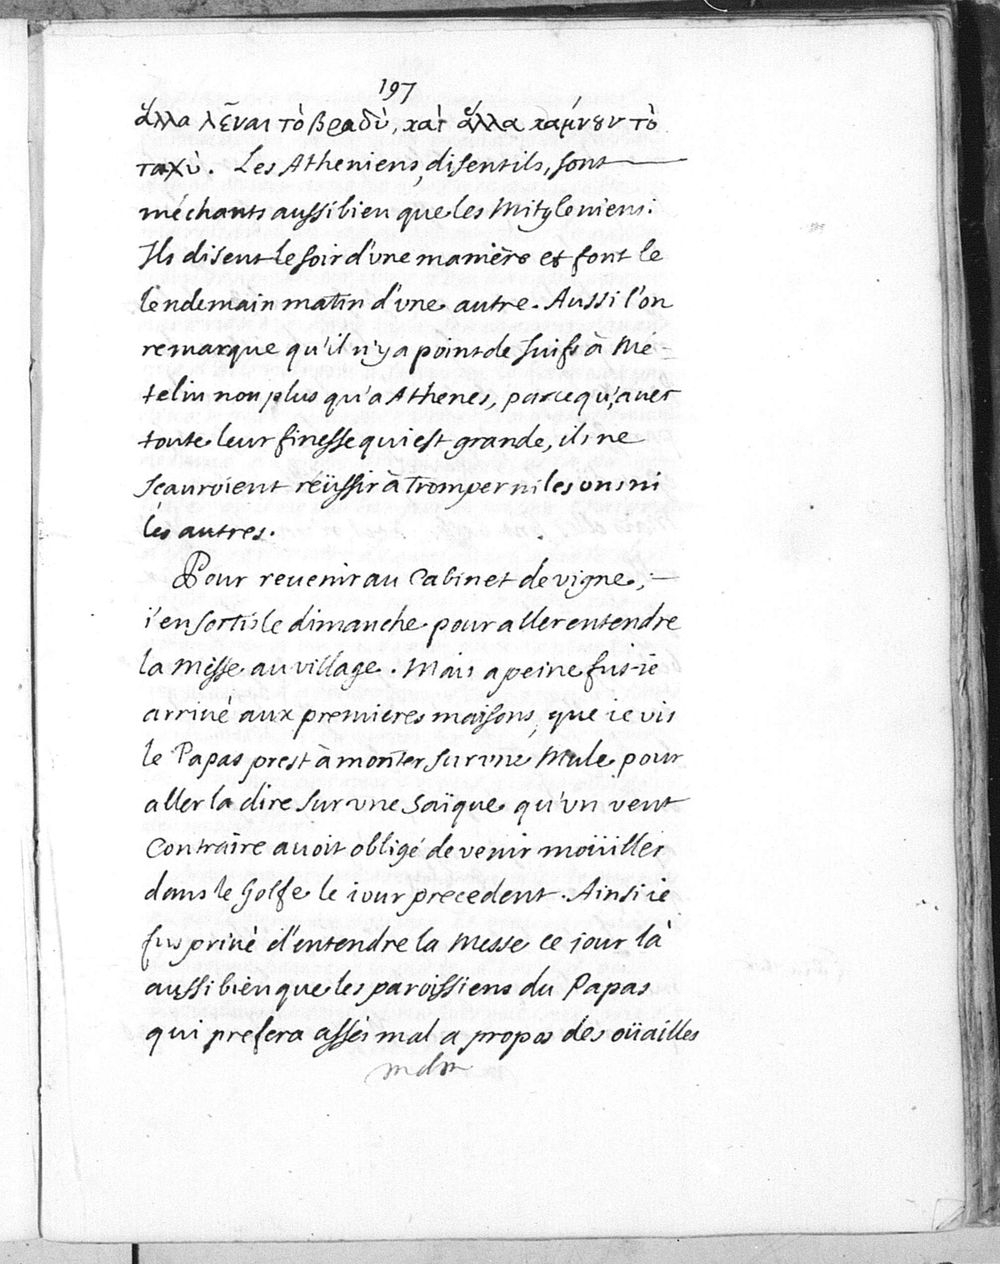 197
ἄλλα λέναι τὸ βραδὺ, καὶ ἄλλα κάμνουν τὸ
ταχὺ. Les Atheniens, disentils, sont
méchants aussi bien que les Mityleniens.
Ils disent le soir d'vne manière et font le
lendemain matin d'vne autre. Aussi l'on
remarque qu'il n'y a point de Iuifs à Me-
telin non plus qu'a Athenes, parcequ'auec
toute leur finesse qui est grande, ils ne
sçauroient réüssir à tromper ni les uns ni
les autres.
Pour reuenir au Cabinet de vigne,
i'en sortis le dimanche pour aller entendre
la Messe au village. Mais a peine fus-ie
arriué aux premieres maisons, que ie vis
le Papas prest à monter sur vne Mule pour
aller la dire sur vne Saïque qu'vn vent
Contraire auoit obligé de venir moüiller
dans le Golfe le iour precedent. Ainsi ie
fus priué d'entendre la Messe ce jour là
aussi bien que les paroissiens du Papas
qui prefera assés mal a propos des oüailles